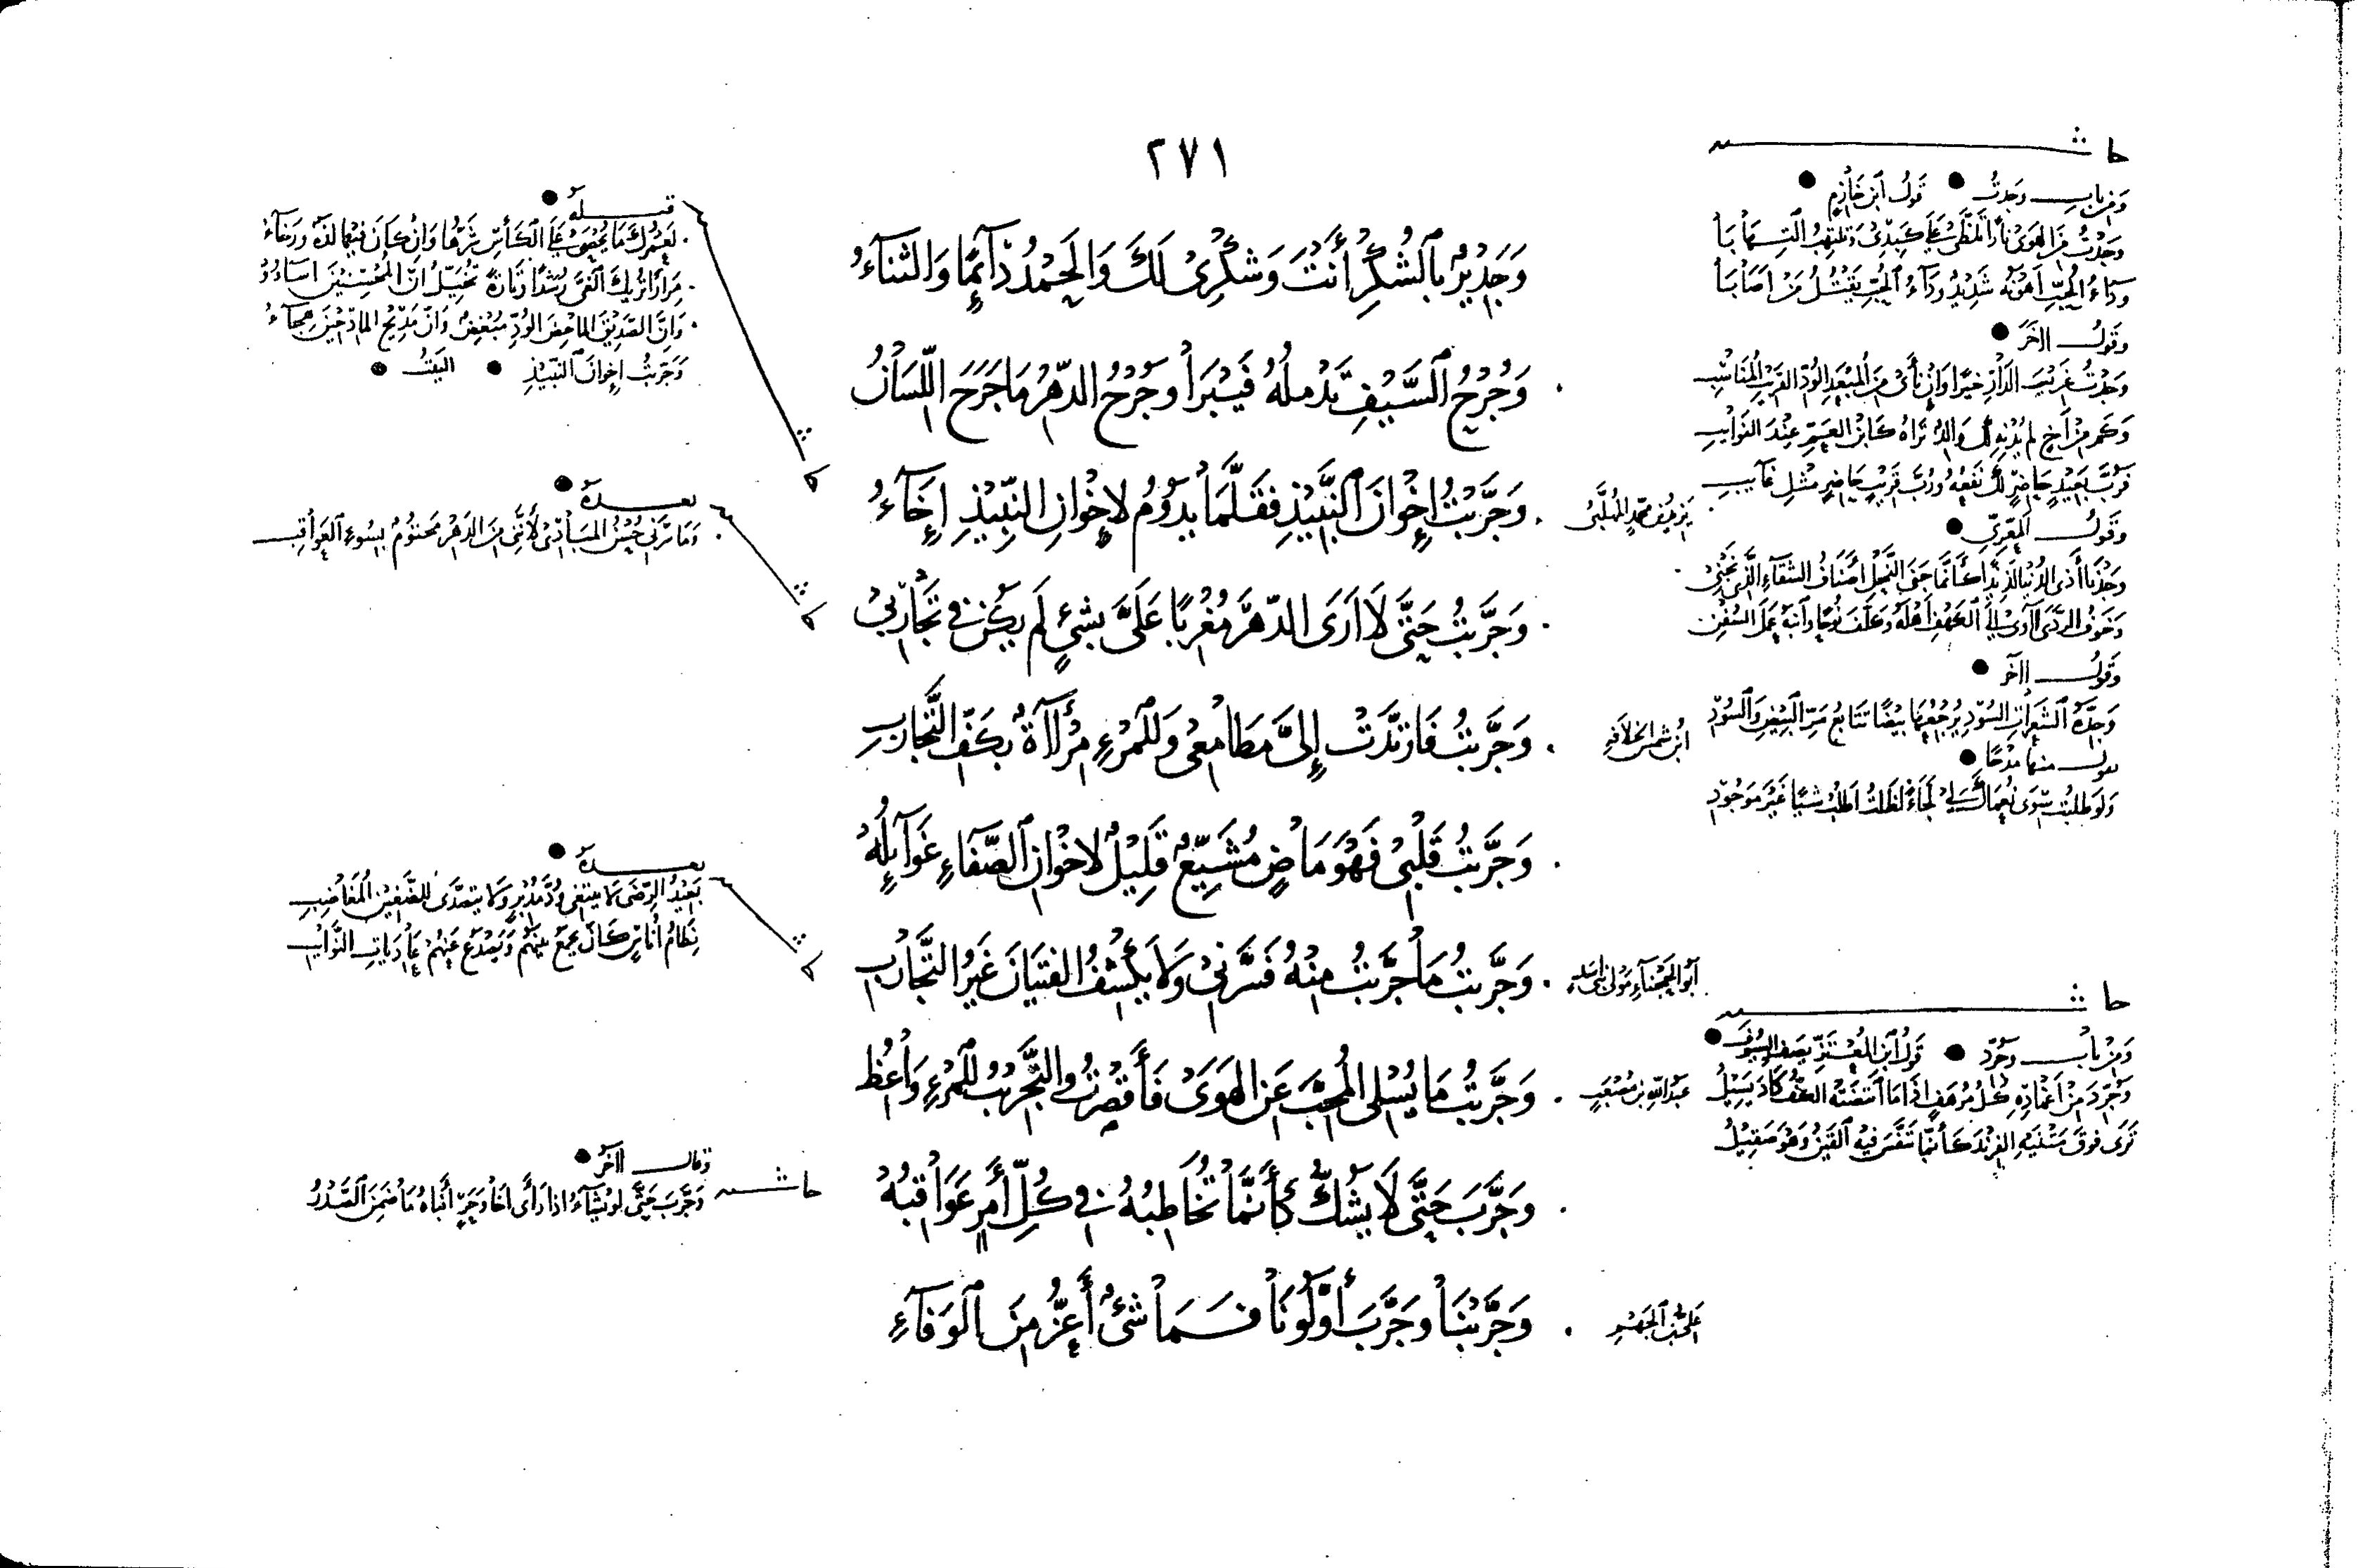 ٢٧١
وَجَدِيْرٌ بِالشُكْرِ أَنْتَ وَشُكْرِىْ لَكَ وَالْحَمْدُ دَآئِمًا وَالثَنآءُ
وَجُرْحُ السَّيْفِ تَدْملُهُ فَيَبْرَأُ وجُرْحُ الدّهْرُ مَا جَرَحَ اللّسَانُ
وَجَرَّبْتُ إِخْوَانَ النَّبِيْذِ فقَلَّمَا يَدُوْمُ لإِخْوانِ النَّبِيْذِ إِخَآءُ
يزيد بن محمد المهلّبىُّ
وَجَرَّبتُ حَتَّى لَا اَرَى الدّهَرَ مُغْرِبًا عَلَىَّ بشَىْءٍ لَم يَكُنْ فى تَجَارِبىْ
وَجَرَّبتُ فَارْتَدَّتْ إِلىَّ مَطَامِعى وَلِلْمَرْءِ مِرْآةٌ بِكَفِّ التَّجارِبِ
ابن شمس الخلافةِ
وَجَرَّبتُ قَلْبِىْ فَهْوَ مَاضٍ مُشَيّعٌ قَلِيْلٌ لاخْوانِ الصَّفَاءِ غَوَآئِلُهُ
وَجَرَّبتُ مَا جَرَّبتُ مِنْهُ فَسَرَّنىْ وَلَا يَكْشِفُ الفتيَانَ غَيرُ التَّجَارُبِ
أبو الحجناءِ مولى بنى اسدٍ
وَجَرَّبتُ مَا يُسْلى الُمحِبَّ عَنِ الهَوَىْ فَأَقصَرتُ والتَّجْرِبُ لِلْمَرْءِ وَاعُظ
عبد اللهِ بن مصعبٍ
وَجَرَّبَ حَتَّى لَا يَشُكُّ كَأَنَّمَا تُخَاطِبُهُ فى كُلِّ أَمرٍ عَوَاقِبُهُ
وَجَرَّبْنَا وَجَرَّبَ أَوَّلُوْنَا فَمَا شَىْءٌ أَعِزُّ مِنَ الوَفَآءِ
على بن الجهم
حاشـ
ومن باب وجدتُ قولُ ابن خَازم
وَجَدْتُ مِنَ الهَوى نَارًا تَلَظّى عَلَى كَبِدِىْ وَتَلتهِبُ التِهَابَا
ودَآءُ الحُبِّ اَهوَنُهُ شَدِيْدٌ ودَآءُ الحُبِّ يَقْتُلُ مَنْ اَصَابَا
وقول اآخر
وَجَدْتُ غَرِيبَ الدَّارِ خيرًا وَاِنْ نأَى مِنَ المُبْعِدِ الوُدّ القريب المُنَاسِبِ
وَكم مِنْ اَخٍ لم يُدْنِهِ لَك وَالِدٌ تراهُ كَابن العَمِّ عِنْدَ النوَائِبِ
فرُبَّ بَعِيْدٍ حَاضِرٌ لَكَ نَفعُهُ ورُبَّ قَرِيْبٍ حَاضِرٍ مثلِ غآئبِ
وقول المعَرِّى
وَجَدْنَا أَذى الدُنيا لذِيذًا كَأنّما جَنَى النَّحلِ اَصْنَافُ الشقآءِ الذى نجْنِىْ
وَخَوفُ الرّدَى اآوى إلى الكهفِ أهْلَهُ وَعَلّمَ نُوْحًا وَابْنَهُ عَمَلَ السُفْنِ
وقول اآخر
وَجِدَّةُ الشَعَراتِ السُوْدِ يُرْجِعُهَا بيْضًا تتَابُعُ مَرِّ البِيْضِ وَالسُوْدِ
يقول منها مَدْحًا
ولو طلَبْت سِوَى نُعمَاكَ لى لَجَاءً لظَلتُ اطلبُ شيئًا غَيرَ مَوجُوْدِ
حاشـ
ومن باب وجُرِّدَ قولُ ابن المعْتَزِّ يصف السيُوْفَ
وَجُرِّدَ مِنْ أَغْمَادِهِ كُلُّ مُرْهَفٍ اذَا مَا انتضَتْهُ الكَفُّ كَادَ يَسِيْلُ
تَرَى فوقَ مَتْنَيْهِ الفِرْندَ كَأنّما تَنَفّسَ فيْهِ القَيْنُ وَهْوَ صَقِيْلُ
قبلهُ
لعَمْرُكَ مَا يُحْصَى عَلَى الكَأسِ شَرُّهَا وَاِنْ كَانَ فيْهَا لذّةٌ ورَخَآءُ
مِرَارًا تُرِيْكَ الغىَّ رُشْدًا وَتَارةً تُخيّلُ أَنَّ المُحْسِنِيْنَ اسَاءُوْا
وَانَّ الصّدِيْقَ المَاحِضَ الوُدِّ مُبْغِضٌ وَانَّ مَدِيْحَ المادِحِيْنَ هِجآءُ
وَجَرّبْتُ إِخوانَ النّبِيْذِ البيتُ
بعدهُ
وَمَا سَرَّنى حُسْنُ المبَادىْ لأَنّنى مِنَ الدَهْرِ مَحتوْمٌ بِسُوءِ العَوَاقِب
بعدهُ
بَعِيْدُ الرِضَى لا يبتغى وُدَّ مُدْبِرٍ ولا يتصَدّى للضَّغِيْنِ المُغَاضِبِ
نِظَامُ أُنَاسٍ كَانَ يجمَعُ بينَهُم وَيَصْدَعُ عَنْهُمْ عَادِيَاتِ النَّوَائِب
حاشـ
وقال اآخر
وَجَرَّبَ حَتَّى لَوْ يشَآءُ اذَا رَأَى اَخَا وَجَرٍ أَنْبَاهُ مَا ضَمِنَ الصَدْرُ